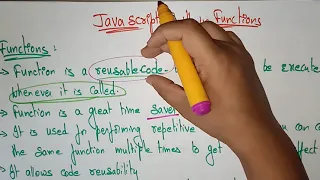 Java script Functions
Functions :
→ Function is a reusable code be execute
whenever it is called.
→ Function is a great time saver
→ It is used for perfiming repetitive can c
the same function multiple times to get effect
→ It allows code reusability